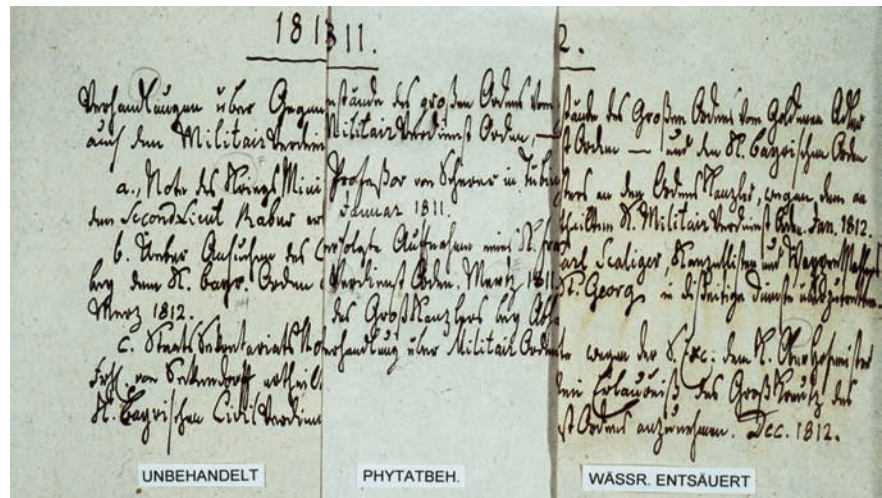 181
Verhandlungen über Gegen
auch dem Militair Verdien
a., Note des Kriegs Mini
dem Second Lieut Raber er
b. Ueber Ansuchen des
bey dem K. bayr. Orden
Merz 1812.
c. Staats Sekretariats No
Frh. von Sekendorff ertheil
K. Bayrischen Civil Verdiens
UNBEHANDELT
811.
nstände des großen Ordens vom
Militair Verdienst Orden, —
Professor von Scherer in Tübin
Januar 1811.
erfolgte Aufnahm eines K.
Verdienst Orden. Mertz 1811
des Großkanzlers bey
erhandlung über Militair Orden
PHYTATBEH.
2.
stände des Großen Ordens vom Goldenen Adler
st Orden — und den K. bayrischen Orden
sters an den Ordens Kanzler, wegen dem an
theilten K. Militair Verdienst Orden. Jan. 1812.
arl Scaliger, Kanzellisten und Wappen Mahlers
St. Georg in disseitige Dienste überzutretten.
te wegen der S. Exc: dem K. Oberhofmeister
Erlaubniß des Groß Kreutz des
st Ordens anzunehmen. Dec. 1812.
WÄSSR. ENTSÄUERT